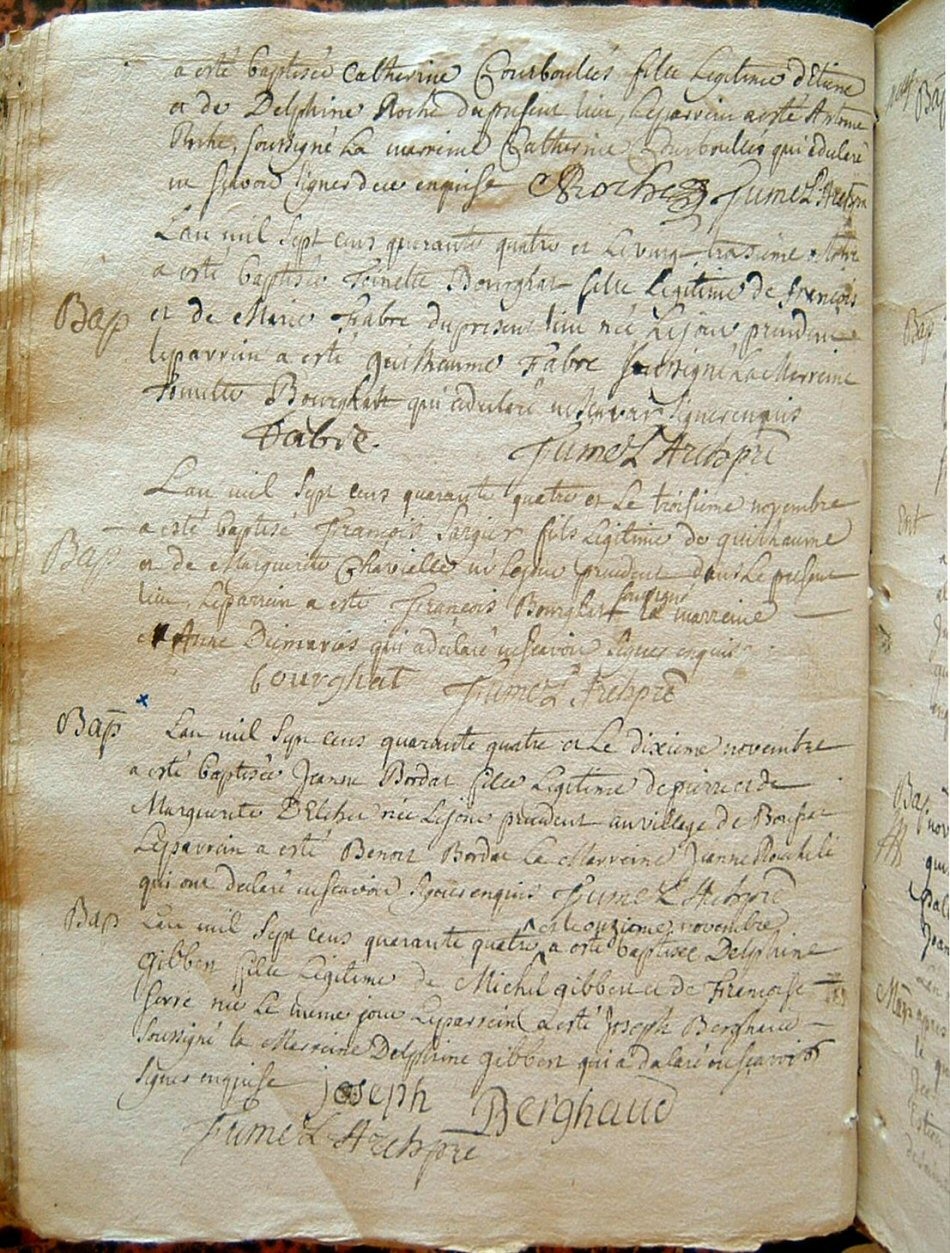 a esté baptisée Catherine Courboulés fille Legitime d'Etiene
et de Delphine Roche du present lieu, Le parrein a esté Antoine
Roche, soussigné La marreine Catherine Courboulés qui a declaré
ne sçavoir signer de ce enquise ARoche Fumel Archpre
L'an mil sept cens quarante quatre et Le vingt troisieme
a esté baptisée Toinette Bourghat fille Legitime de françois
Bap et de Marie Fabre du present lieu née Le jour precedent
le parrein a esté Guilhaume Fabre soussigné La Marreine
Toinette Bourghat qui a declaré ne sçavoir signer enquis
Fabre. Fumel Archpre
L'an mil sept cens quarante quatre et Le troisième novembre
a esté baptisé François Sargier fils Legitime de guilhaume
Bap et de Marguerite Chavielle né Le jour precedent dans Le present
lieu, Le parrein a esté François Bourghat soussigné la marreine
Anne Dumarias qui a declaré ne sçavoir signer enquis
bourghat Fumel Archpre
Bap L'an mil sept cens quarante quatre et Le dixieme novembre
a esté baptisée Jeanne Bordat fille Legitime de pierre et de
Marguerite DElcher née Le jour precedent au village de
Le parrein a esté Benoit Bordat La Marreine Jeanne
qui ont declaré ne sçavoir signer enquis Fumel Archpre
Bap L'an mil sept cens quarante quatre et le onzieme novembre a esté baptisée Delphine
Gibbert fille Legitime de Michel gibbert et de Françoise
Serre née Le meme jour Le parrein a esté Joseph Berghaud
soussigné la Marreine Delphine gibbert qui a declaré ne sçavoir
signer enquise joseph Berghaud
Fumel Archpre